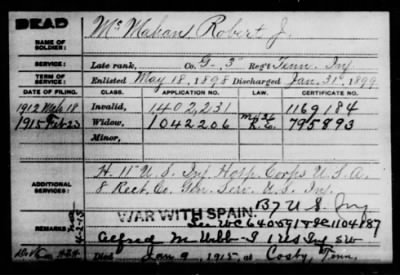 DEAD
NAME OF SOLDIER:
McMahan, Robert J.
SERVICE:
Late rank, Co. G, 3 Reg't Tenn. Inf.
TERM OF SERVICE:
Enlisted May 18, 1898 Discharged Jan. 31, 1899
DATE OF FILING. CLASS. APPLICATION NO. LAW. CERTIFICATE NO.
1912 Mch 18 Invalid, 1,402,231 1169184
1915 Feb 23 Widow, 1042206 795893
Minor,
ADDITIONAL SERVICES:
H. 11" U.S. Inf. Hosp. Corps U.S.A.
8 Rect. Co. Gen. Serv. U.S. Inf.
B 7 U.S. Inf
WAR WITH SPAIN.
See WC 640591 & SC 1104187
Alfred M Webb - I 1 US Inf SW
Died Jan. 9, 1915, at Cosby, Tenn.